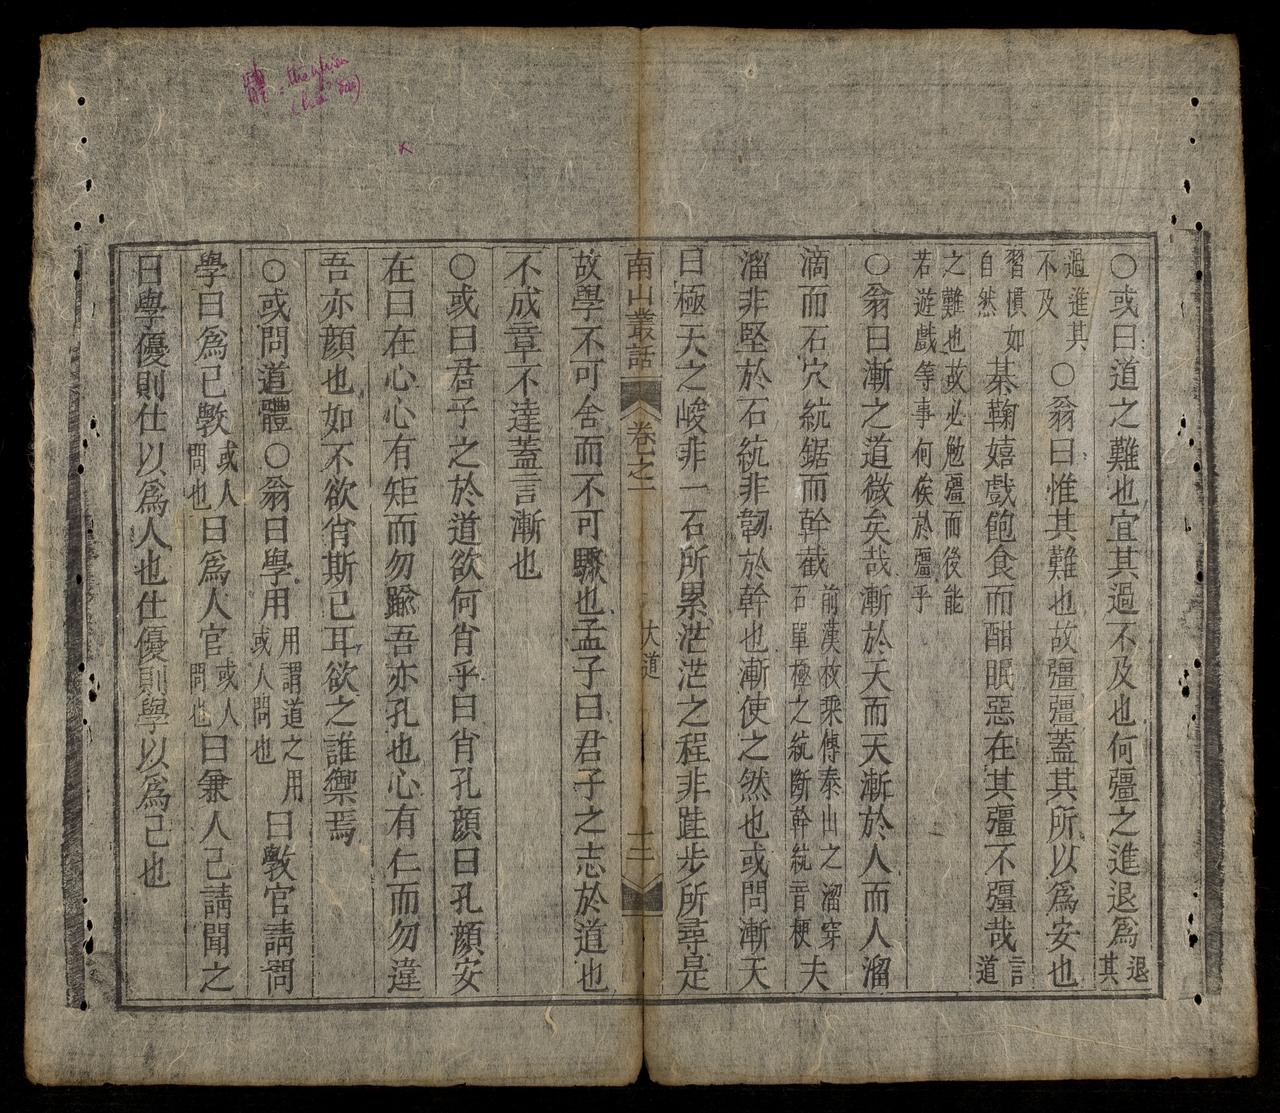 ○或曰道之難也宜其過不及也何彊之進退爲退其
過進其不及○翁曰惟其難也故彊彊蓋其所以爲安也
習慣如自然棊鞠嬉戲飽食而酣眠惡在其彊不彊哉言道
之難也故必勉彊而後能若遊戲等事何俟於彊乎
○翁曰漸之道微矣哉漸於天而天漸於人而人溜
滴而石穴綂鋸而幹截前漢枚乘傳泰山之溜穿石單極之綂斷幹綂音梗夫
溜非堅於石綂非韌於幹也漸使之然也或問漸天
曰極天之峻非一石所累茫茫之程非跬步所尋是
南山叢話 卷之一 大道 十二
故學不可舍而不可驟也孟子曰君子之志於道也
不成章不達蓋言漸也
○或曰君子之於道欲何肖乎曰肖孔顔曰孔顔安
在曰在心心有矩而勿踰吾亦孔也心有仁而勿違
吾亦顔也如不欲肖斯已耳欲之誰禦焉
○或問道體○翁曰學用用謂道之用或人問也曰斆官請問
學曰爲己斆或人問也曰爲人官或人問也曰兼人己請聞之
曰學優則仕以爲人也仕優則學以爲己也
體